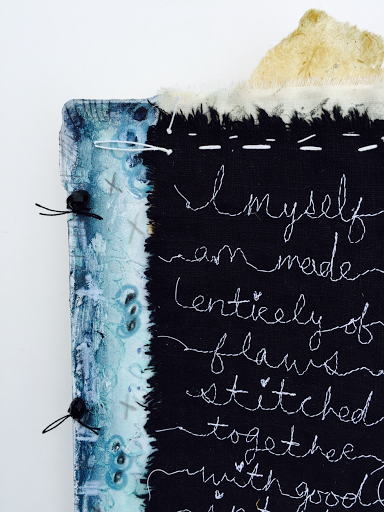 I myself
am made
entirely of
flaws
stitched
together
with good